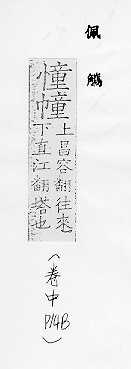 佩觿
憧幢
上昌容翻往來
下直江翻塔也
(卷中
P14B)